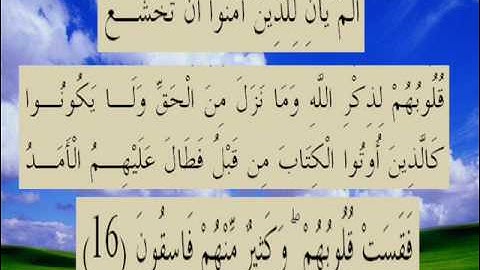 أَلَمْ يَأْنِ لِلَّذِينَ آمَنُوا أَن تَخْشَــعَ
قُلُوبُهُمْ لِذِكْرِ اللَّهِ وَمَا نَزَلَ مِنَ الْحَقِّ وَلَــا يَكُونُــوا
كَالَّذِينَ أُوتُوا الْكِتَابَ مِن قَبْلُ فَطَالَ عَلَيْهِــمُ الْأَمَــدُ
فَقَسَتْ قُلُوبُهُمْ ۖ وَكَثِيرٌ مِّنْهُمْ فَاسِقُونَ (16)